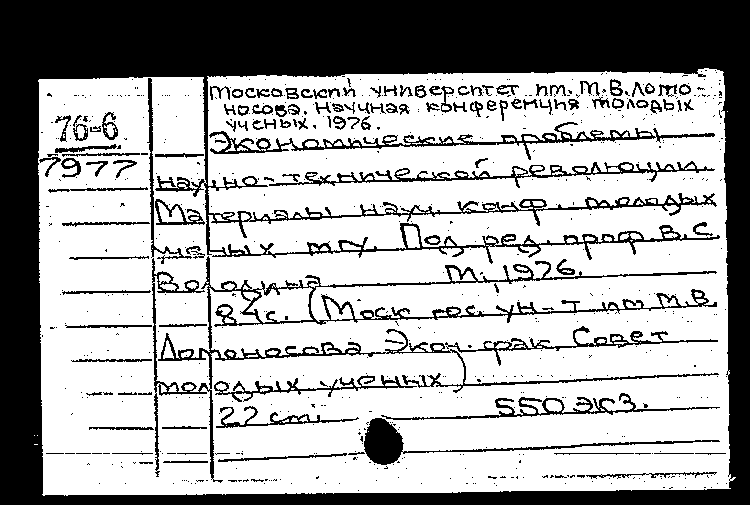 Московский университет им. М.В. Ломо-
носова. Научная конференция молодых
ученых. 1976.
76-6
7977
Экономические проблемы
науч.но-технической революции.
Материалы науч. конф. молодых
ученых МГУ. Под ред. проф. В.С.
Володина М., 1976.
84с. (Моск. гос. ун-т им. М.В.
Ломоносова, Экон. фак. Совет
молодых ученых).
22 см. 550 экз.